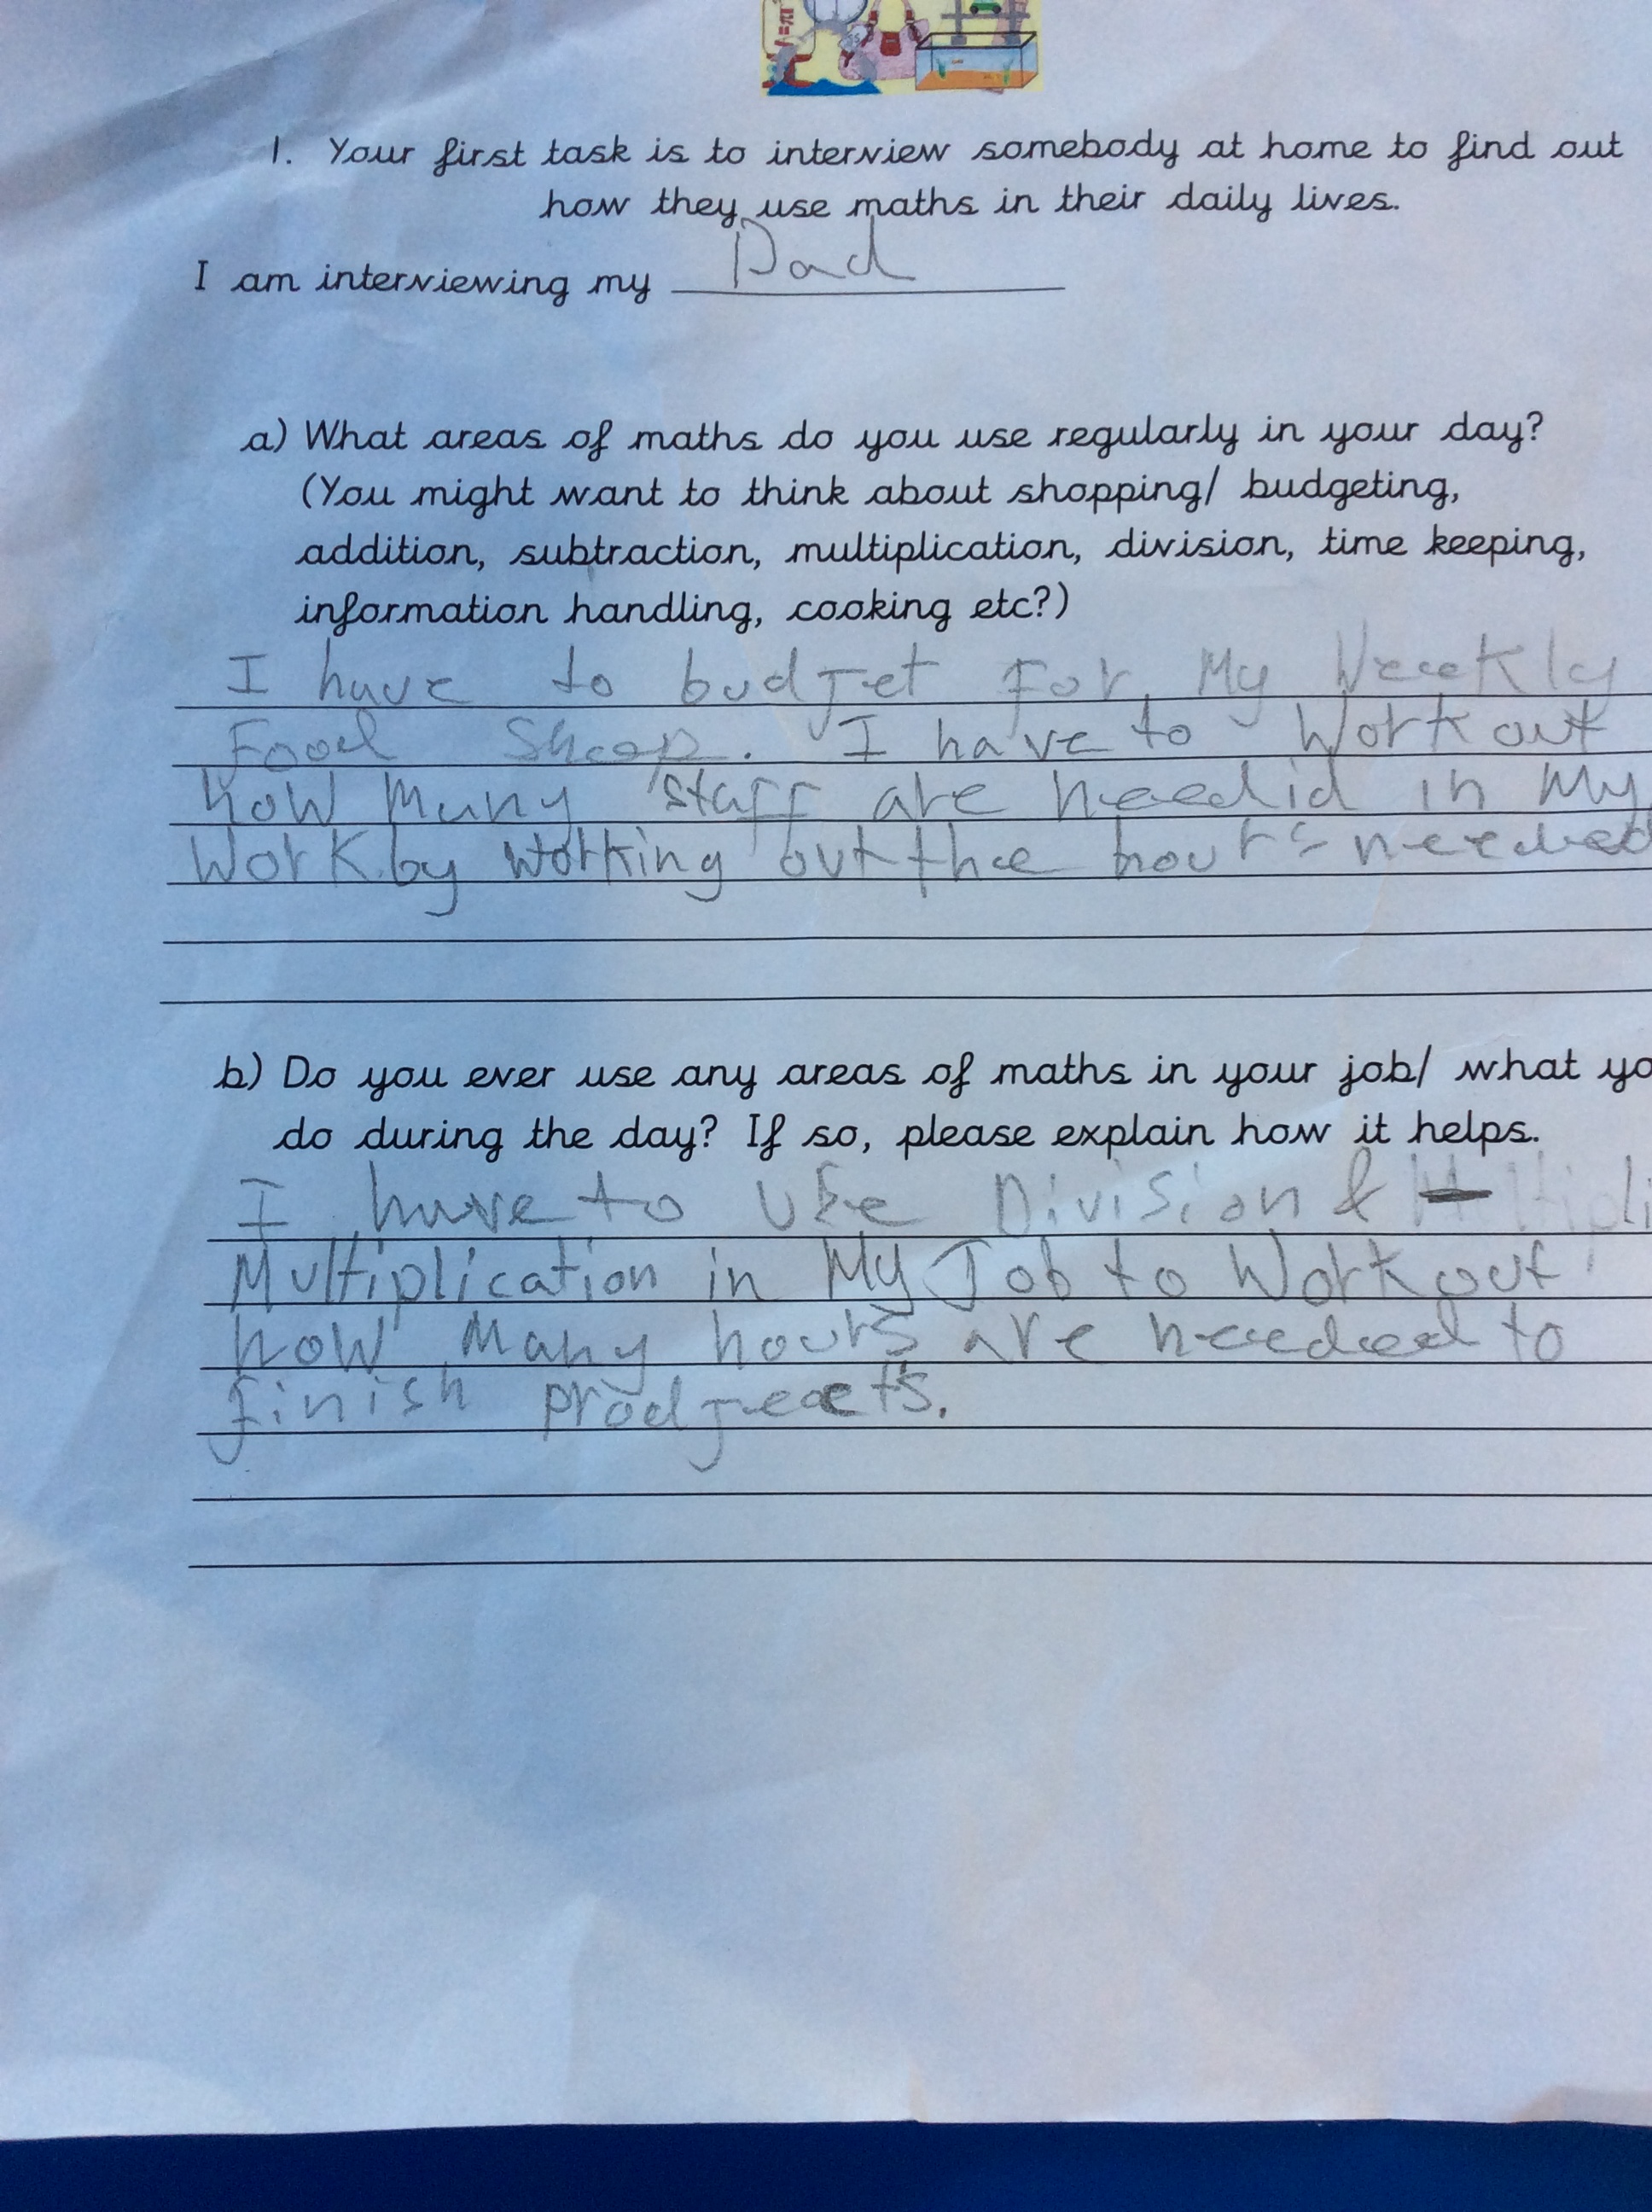 1. Your first task is to interview somebody at home to find out
how they use maths in their daily lives.
I am interviewing my Dad
a) What areas of maths do you use regularly in your day?
(You might want to think about shopping/ budgeting,
addition, subtraction, multiplication, division, time keeping,
information handling, cooking etc?)
I have to budget for My Weekly
Food Shop. I have to Work out
how Many staff are needid in My
Work by working out the hours needed
b) Do you ever use any areas of maths in your job/ what yo
do during the day? If so, please explain how it helps.
I have to Use Division &
Multiplication in My Job to Work out
how Many hours are needed to
finish prodjects.